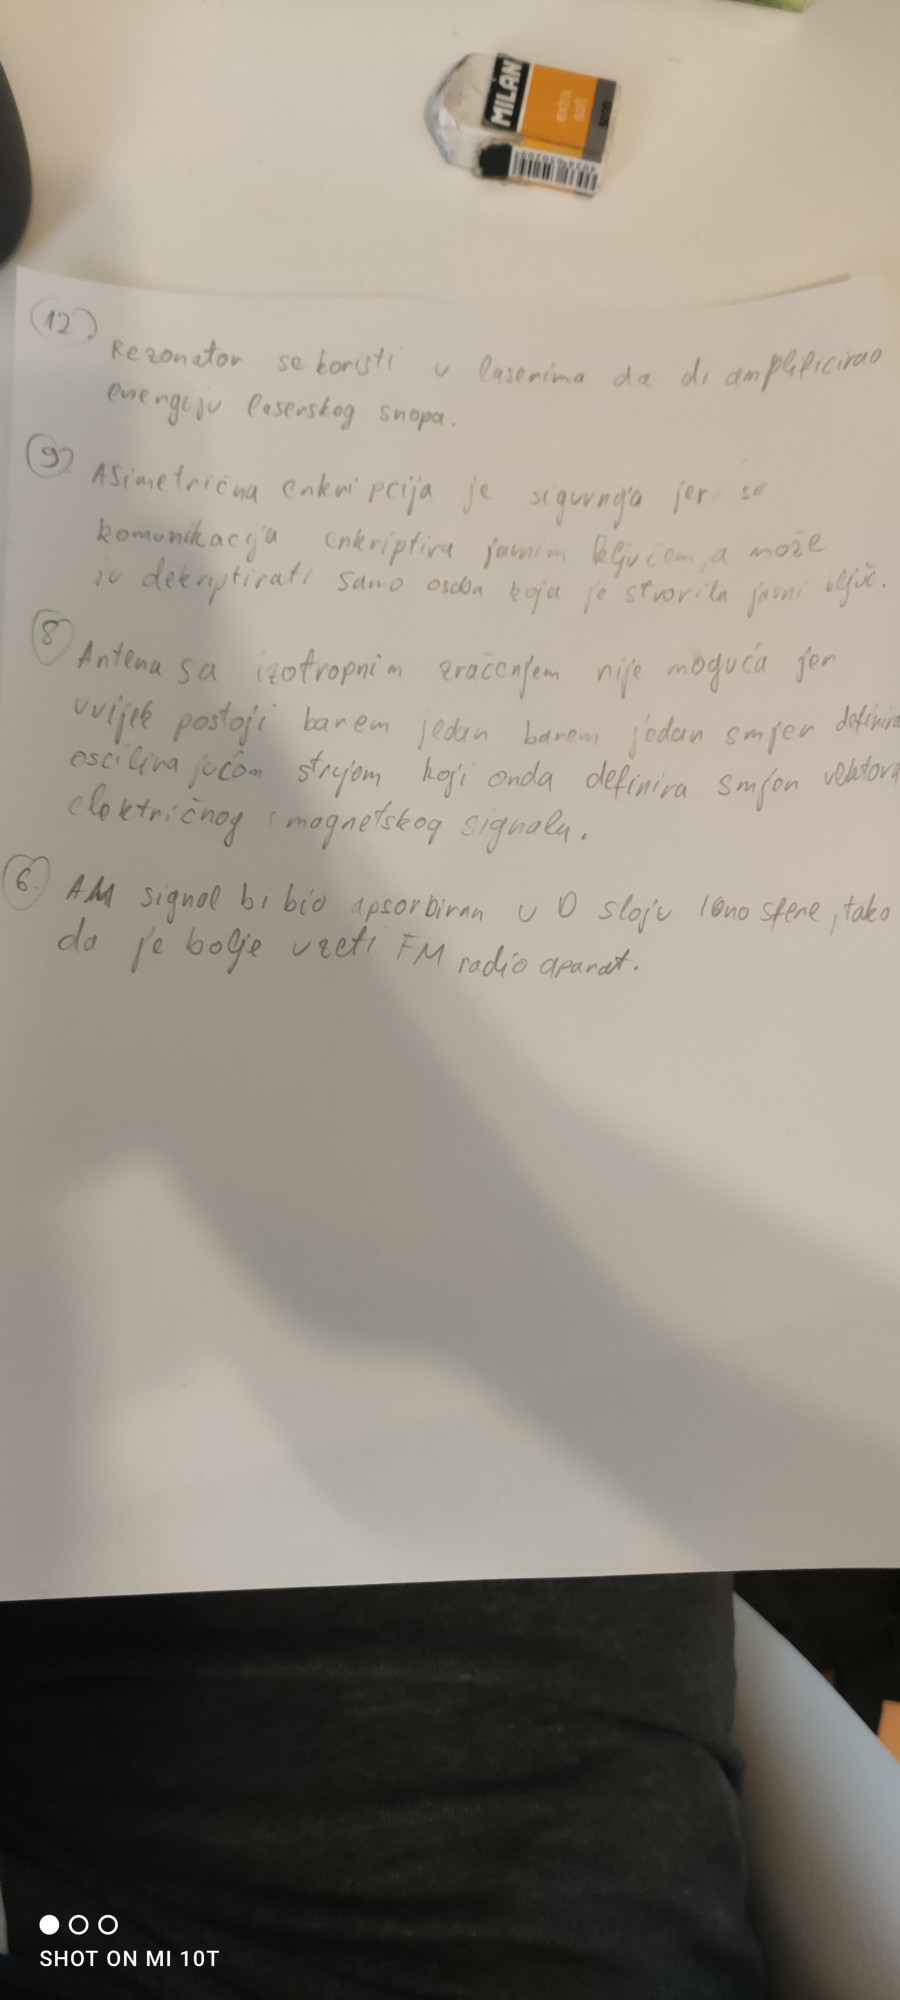 MILAN
extra
soft
12.
Rezonator se koristi u laserima da bi amplificirao
energiju laserskog snopa.
9.
Asimetrična enkripcija je sigurnija jer se
komunikacija enkriptira javnim ključem, a može
ju dekriptirati samo osoba koja je stvorila javni ključ.
8.
Antena sa izotropnim zračenjem nije moguća jer
uvijek postoji barem jedan barem jedan smjer definira
oscilirajućom strujom koji onda definira smjer vektora
električnog i magnetskog signala.
6.
AM signal bi bio apsorbiran u D sloju ionosfere, tako
da je bolje uzeti FM radio aparat.
SHOT ON MI 10T